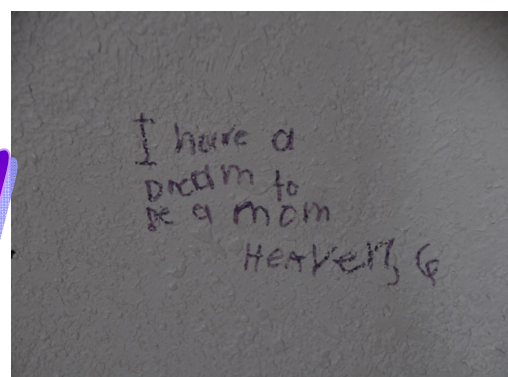 I have a
Dream to
be a mom
Heaven, 6